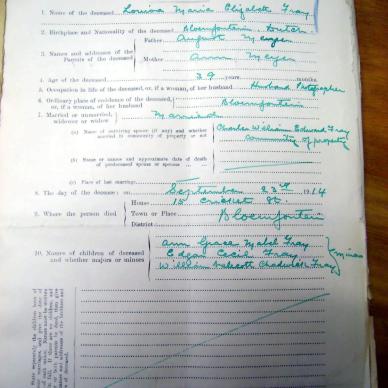 1. Name of the deceased Louisa Maria Elizabeth Fray
2. Birthplace and Nationality of the deceased Bloemfontein, Dutch.
3. Names and addresses of the Parents of the deceased
Father August Meyer
Mother Anna Meyer
4. Age of the deceased 29 years months.
5. Occupation in life of the deceased, or, if a woman, of her husband Husband Photographer
6. Ordinary place of residence of the deceased, or, if a woman, of her husband Bloemfontein
7. Married or unmarried, widower or widow Married
(a) Name of surviving spouse (if any) and whether married in community of property or not Charles William Edward Fray
community of property
(b) Name or names and approximate date of death of predeceased spouse or spouses
(c) Place of last marriage
8. The day of the decease: on September 23rd 1914
9. Where the person died
House 15 Cricket St.
Town or Place Bloemfontein
District
10. Names of children of deceased and whether majors or minors
Ann Grace Mabel Fray
Edgar Cecil Fray
William Chadwick Fray
minors